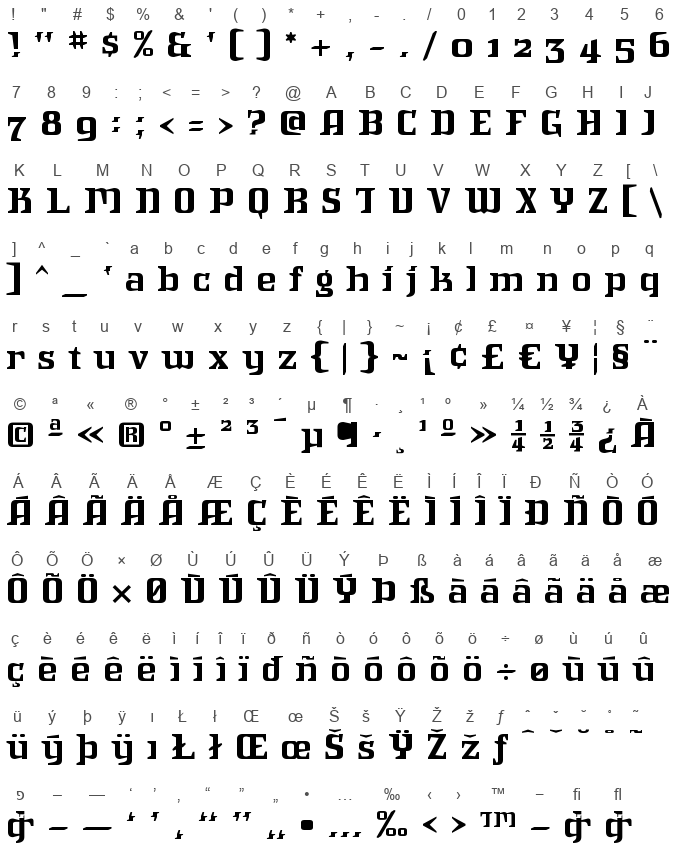 ! " # $ % & ' ( ) * + , - . / 0 1 2 3 4 5 6
! " # $ % & ' [ ] * + , - . / 0 1 2 3 4 5 6
7 8 9 : ; < = > ? @ A B C D E F G H I J
7 8 9 : ; < = > ? @ A B C D E F G H I J
K L M N O P Q R S T U V W X Y Z [ \
K L M N O P Q R S T U V W X Y Z [ \
] ^ _ ` a b c d e f g h i j k l m n o p q
] ^ _ ` a b c d e f g h i j k l m n o p q
r s t u v w x y z { | } ~ ¡ ¢ £ ¤ ¥ ¦ § ¨
r s t u v w x y z { | } ~ ¡ ¢ £ € ¥ ¦ § ¨
© ª « ® ° ± ² ³ ´ µ ¶ · ¸ ¹ º » ¼ ½ ¾ ¿ À
© ª « ® ° ± ² ³ ´ µ ¶ · ¸ ¹ º » ¼ ½ ¾ ¿ À
Á Â Ã Ä Å Æ Ç È É Ê Ë Ì Í Î Ï Ð Ñ Ò Ó
Á Â Ã Ä Å Æ Ç È É Ê Ë Ì Í Î Ï Ð Ñ Ò Ó
Ô Õ Ö × Ø Ù Ú Û Ü Ý Þ ß à á â ã ä å æ
Ô Õ Ö × Ø Ù Ú Û Ü Ý Þ ß à á â ã ä å æ
ç è é ê ë ì í î ï ð ñ ò ó ô õ ö ÷ ø ù ú û
ç è é ê ë ì í î ï ð ñ ò ó ô õ ö ÷ ø ù ú û
ü ý þ ÿ ı Ł ł Œ œ Š š Ÿ Ž ž ƒ ˆ ˇ ˘ ˚ ˜
ü ý þ ÿ ı Ł ł Œ œ Š š Ÿ Ž ž ƒ ˆ ˇ ˘ ˚ ˜
פ – — ‘ ’ ‚ “ ” „ • … ‰ ‹ › ™ − fi fl
– — ‘ ’ ‚ “ ” „ • … ‰ ‹ › ™ −